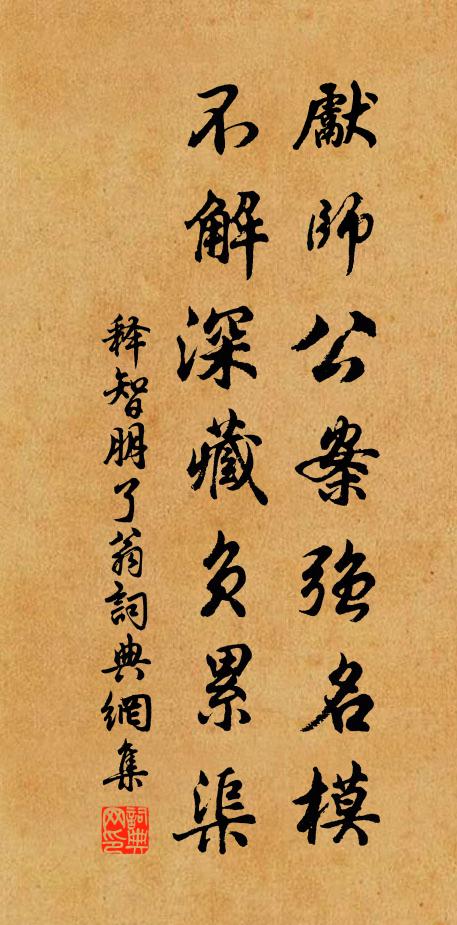 獻師公案強名模
不解深藏負累渠
释智朋了翁詞典網集
詞典网印